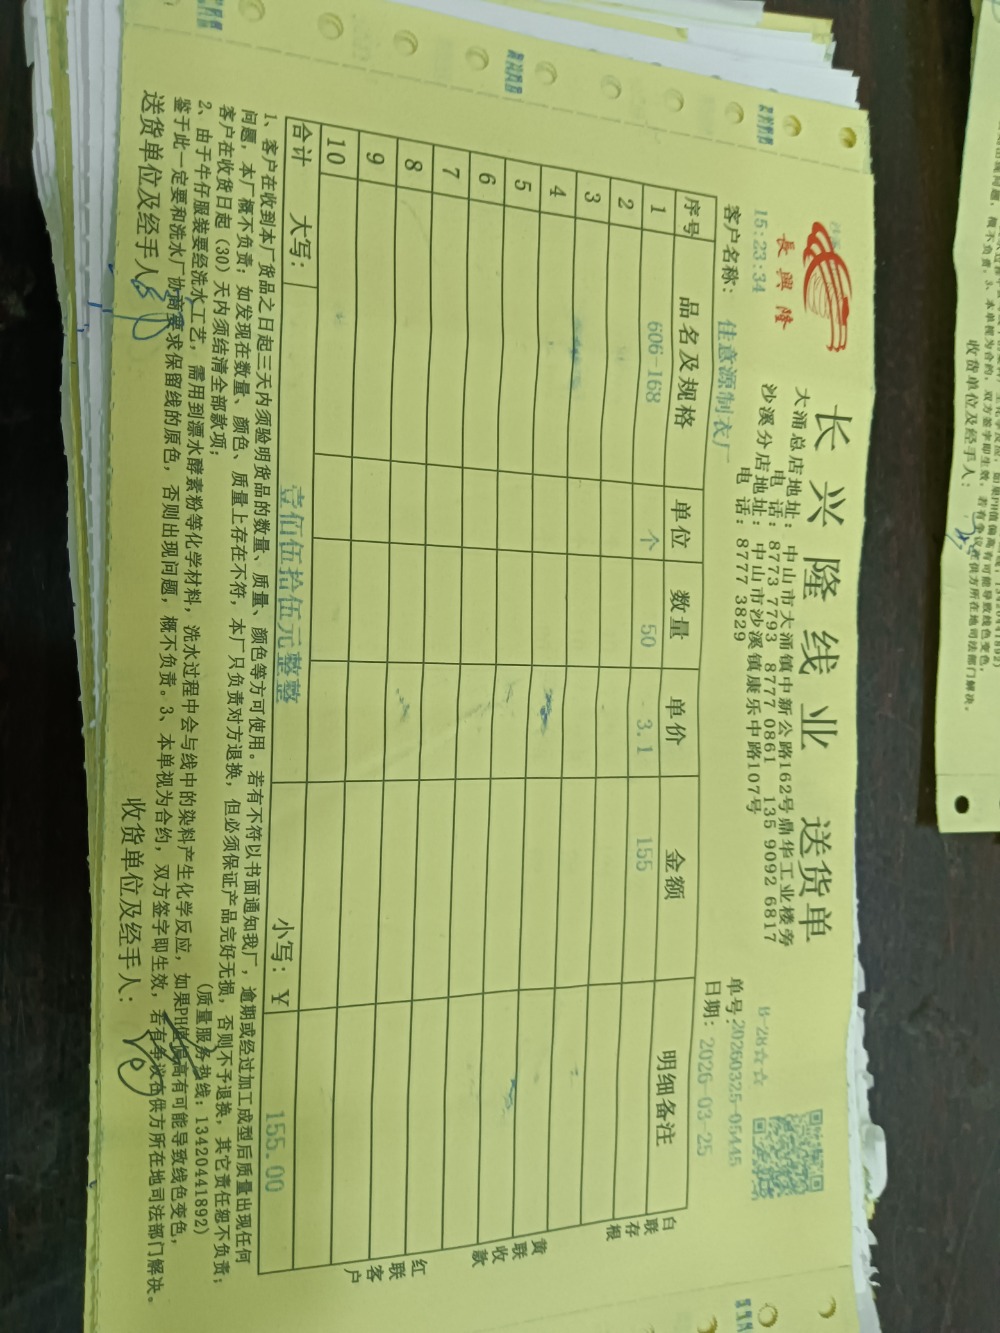 長興隆
长兴隆线业 送货单
大涌总店地址：中山市大涌镇中新公路162号鼎华工业楼旁
电 话：8773 7793 8777 0861 135 9092 6817
沙溪分店地址：中山市沙溪镇康乐中路107号
电 话：8777 3829
B-28☆☆
15:23:34
单号:20260325-05445
客户名称：佳意源制衣厂
日期：2026-03-25
序号 品名及规格 单位 数量 单价 金额 明细备注
1 606-168 个 50 3.1 155
2
3
4
5
6
7
8
9
10
合计 大写： 壹佰伍拾伍元整整 小写：￥ 155.00
白联存根
黄联收款
红联客户
1、客户在收到本厂货品之日起三天内须验明货品的数量、质量、颜色等方可使用。若有不符以书面通知我厂，逾期或经过加工成型后质量出现任何
问题，本厂概不负责；如发现在数量、颜色、质量上存在不符，本厂只负责对方退换，但必须保证产品完好无损，否则不予退换，其它责任恕不负责；
客户在收货日起（30）天内须结清全部款项；
(质量服务热线：13420441892)
2、由于牛仔服装要经洗水工艺，需用到漂水酵素粉等化学材料，洗水过程中会与线中的染料产生化学反应，如果PH值偏高有可能导致线色变色，
鉴于此一定要和洗水厂协商要求保留线的原色，否则出现问题，概不负责。3、本单视为合约，双方签字即生效，若有争议在供方所在地司法部门解决。
送货单位及经手人：
收货单位及经手人：
收货单位及经手人：